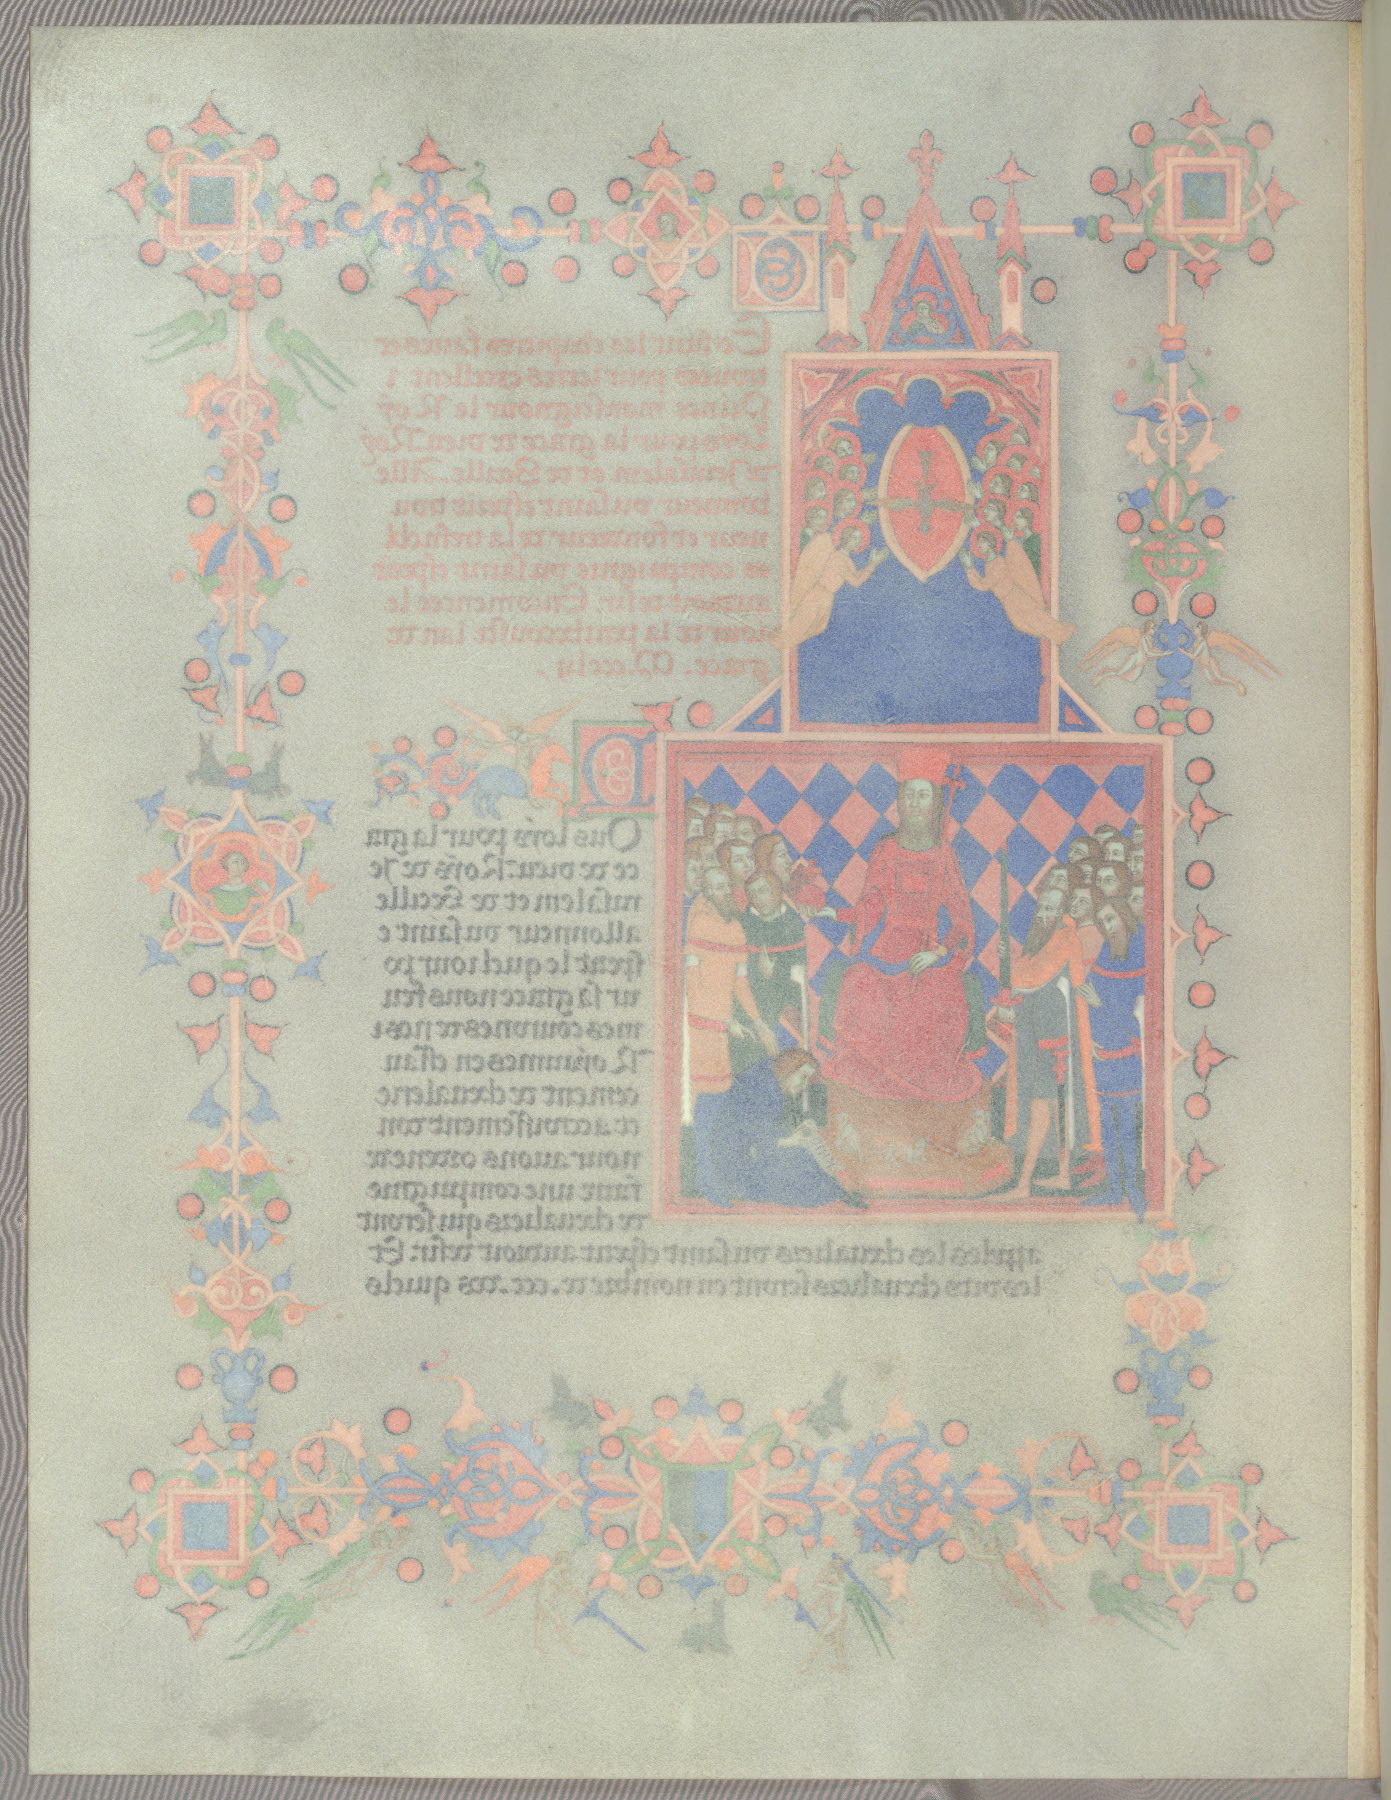 Ce sunt les chapitres
trouvés pour le tres excellent
Prince monseignour le Roy
Loys pour la grace de dieu Roy
de Jerusalem et de Secille. Alle
honneur du saint esperit trou
ueur et fondeeur de la
compaignie du saint
au droit desir. Encomencee le
iour de la penthecouste lan de
grace. M.ccc.lij.
Nous loys pour la gra
ce de dieu Roys de Je
rusalem et de Secille
allonneur du saint e
sperit le quel iour po
ur sa grace nous feu
mes couronnes de nos
Royaumes en essau
cement de cheualerie
et accroissement don
nour auons ordene de
faire une compaignie
de cheualiers qui seront
apellés les cheualiers du saint esperit au droit desir. Et
les diz cheualiers seront en nombre de .ccc. quiels